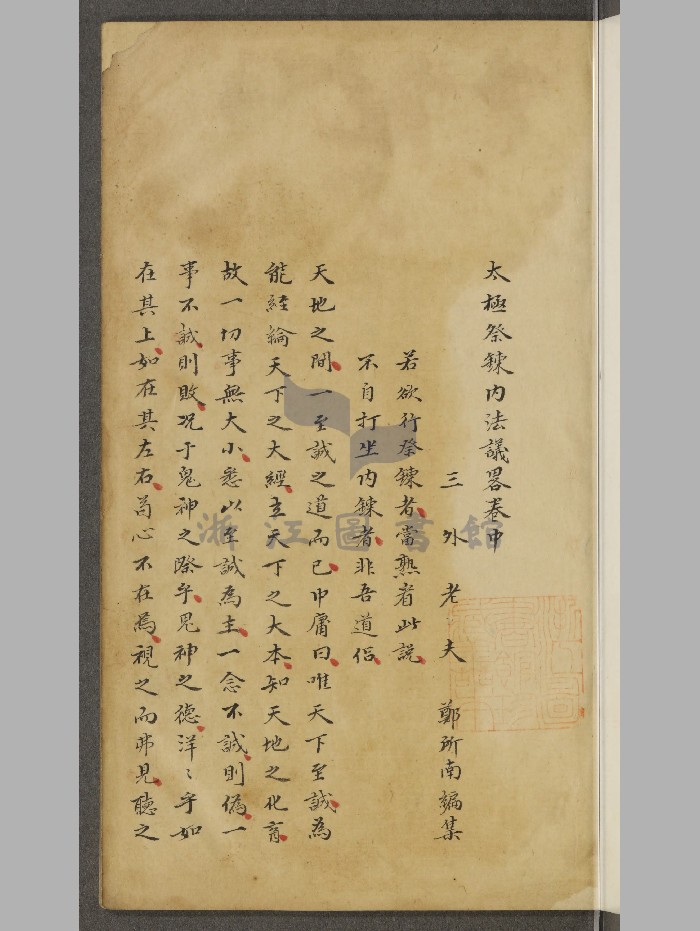 太極祭鍊內法議畧卷中
三外老夫鄭所南編集
若欲行祭鍊者當熟者此說
不自打坐內鍊者非吾道侶
天地之間一至誠之道而已中庸曰唯天下至誠為
能經綸天下之大經立天下之大本知天地之化育
故一切事無大小悉以至誠為主一念不誠則偽一
事不誠則敗况于鬼神之際乎鬼神之德洋〻乎如
在其上如在其左右苟心不在焉視之而弗見聽之
浙江圖書館